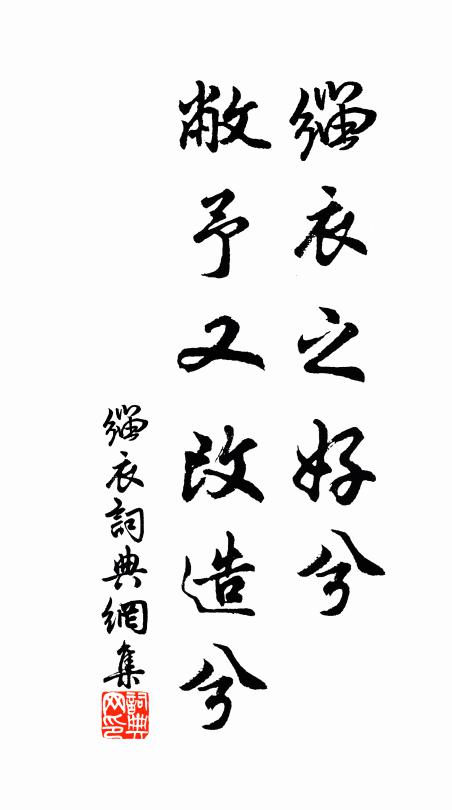 緇衣之好兮
敝予又改造兮
緇衣詞典網集
詞典網印